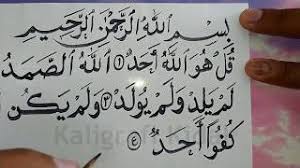 بِسْمِ اللهِ الرَّحْمٰنِ الرَّحِيْمِ
قُلْ هُوَ اللهُ أَحَدٌ ۝١ اَللهُ الصَّمَدُ
لَمْ يَلِدْ وَلَمْ يُوْلَدْ ۝٣ وَلَمْ يَكُنْ
كُفُوًا أَحَدٌ ۝٤